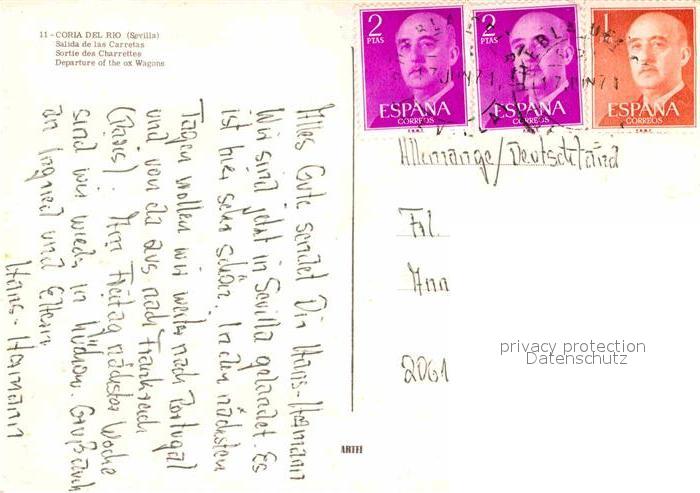 11 - CORIA DEL RIO (Sevilla)
Salida de las Carretas
Sortie des Charrettes
Departure of the ox Wagons
2
PTAS
ESPAÑA
CORREOS
2
PTAS
ESPAÑA
CORREOS
1
ESPAÑA
CORREOS
17 JUN 71
17 JUN 71
Alles Gute sendet Dir Hans-Hermann
Wir sind jetzt in Sevilla gelandet. Es
ist hier sehr schön. In den nächsten
Tagen wollen wir weiter nach Portugal
und von da aus nach Frankreich
(Paris). Am Freitag nächster Woche
sind wir wieder in Lüchow. Grüß auch
an Ingried und Eltern
Hans-Hermann
Allemange/Deutschland
Frl.
Ann
2061
privacy protection
Datenschutz
ARTFI